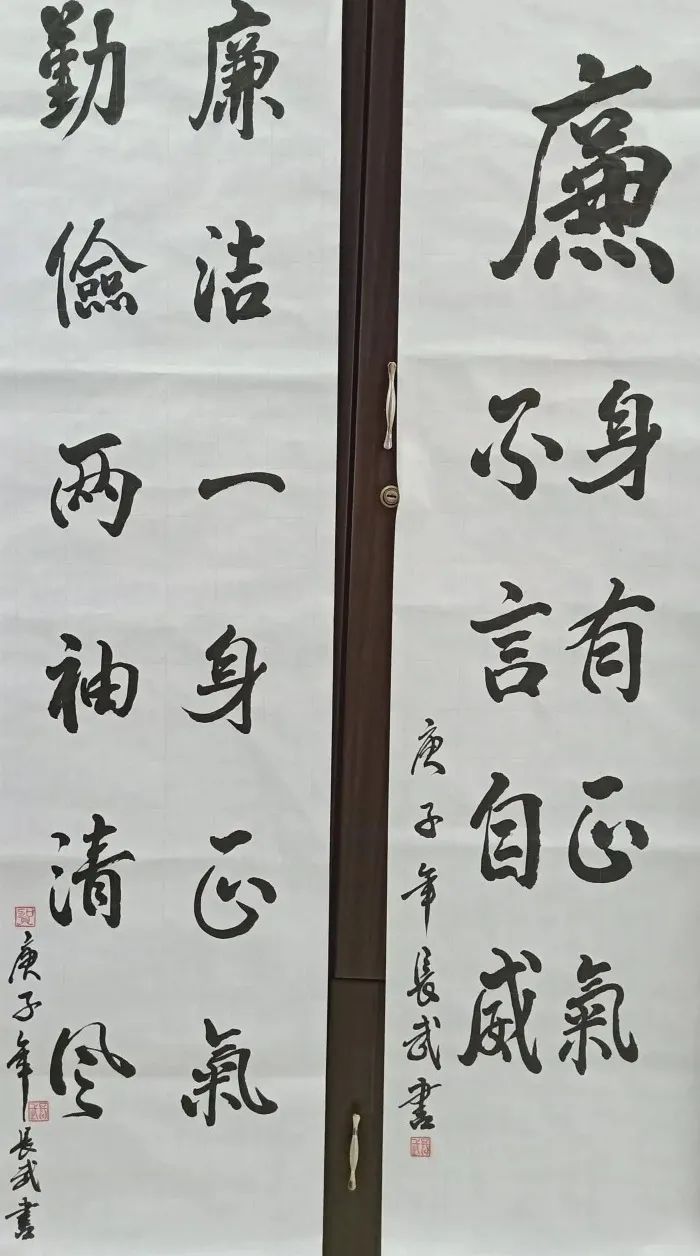 廉
身有正氣
不言自威
庚子年長武書
廉洁一身正氣
勤儉两袖清风
庚子年長武書